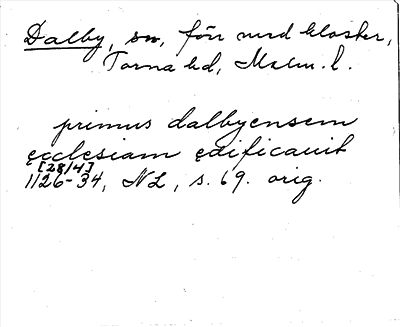 Dalby, sn, förr med kloster,
Torna hd, Malm. l.
primus dalbyensem
ęcclesiam ędificauit
[28/4]
1126-34, NL, s. 69. orig.